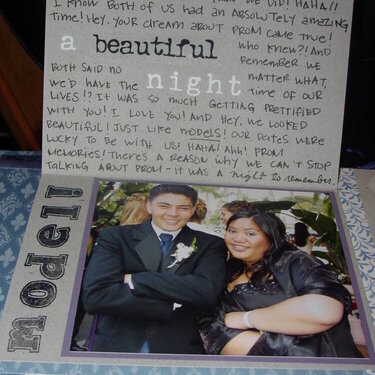 I KNOW BOTH OF US HAD AN ABSOLUTELY AMAZING
TIME! HEY, YOUR DREAM ABOUT PROM CAME TRUE!
a beautiful WHO KNEW?! AND
REMEMBER WE
BOTH SAID NO MATTER WHAT,
WE'D HAVE THE night TIME OF OUR
LIVES!? IT WAS SO MUCH GETTING PRETTIFIED
WITH YOU! I LOVE YOU! AND HEY, WE LOOKED
BEAUTIFUL! JUST LIKE MODELS! OUR DATES WERE
LUCKY TO BE WITH US! HAHA! AHH! PROM
MEMORIES! THERE'S A REASON WHY WE CAN'T STOP
TALKING ABOUT PROM - IT WAS A night to remember.
model!